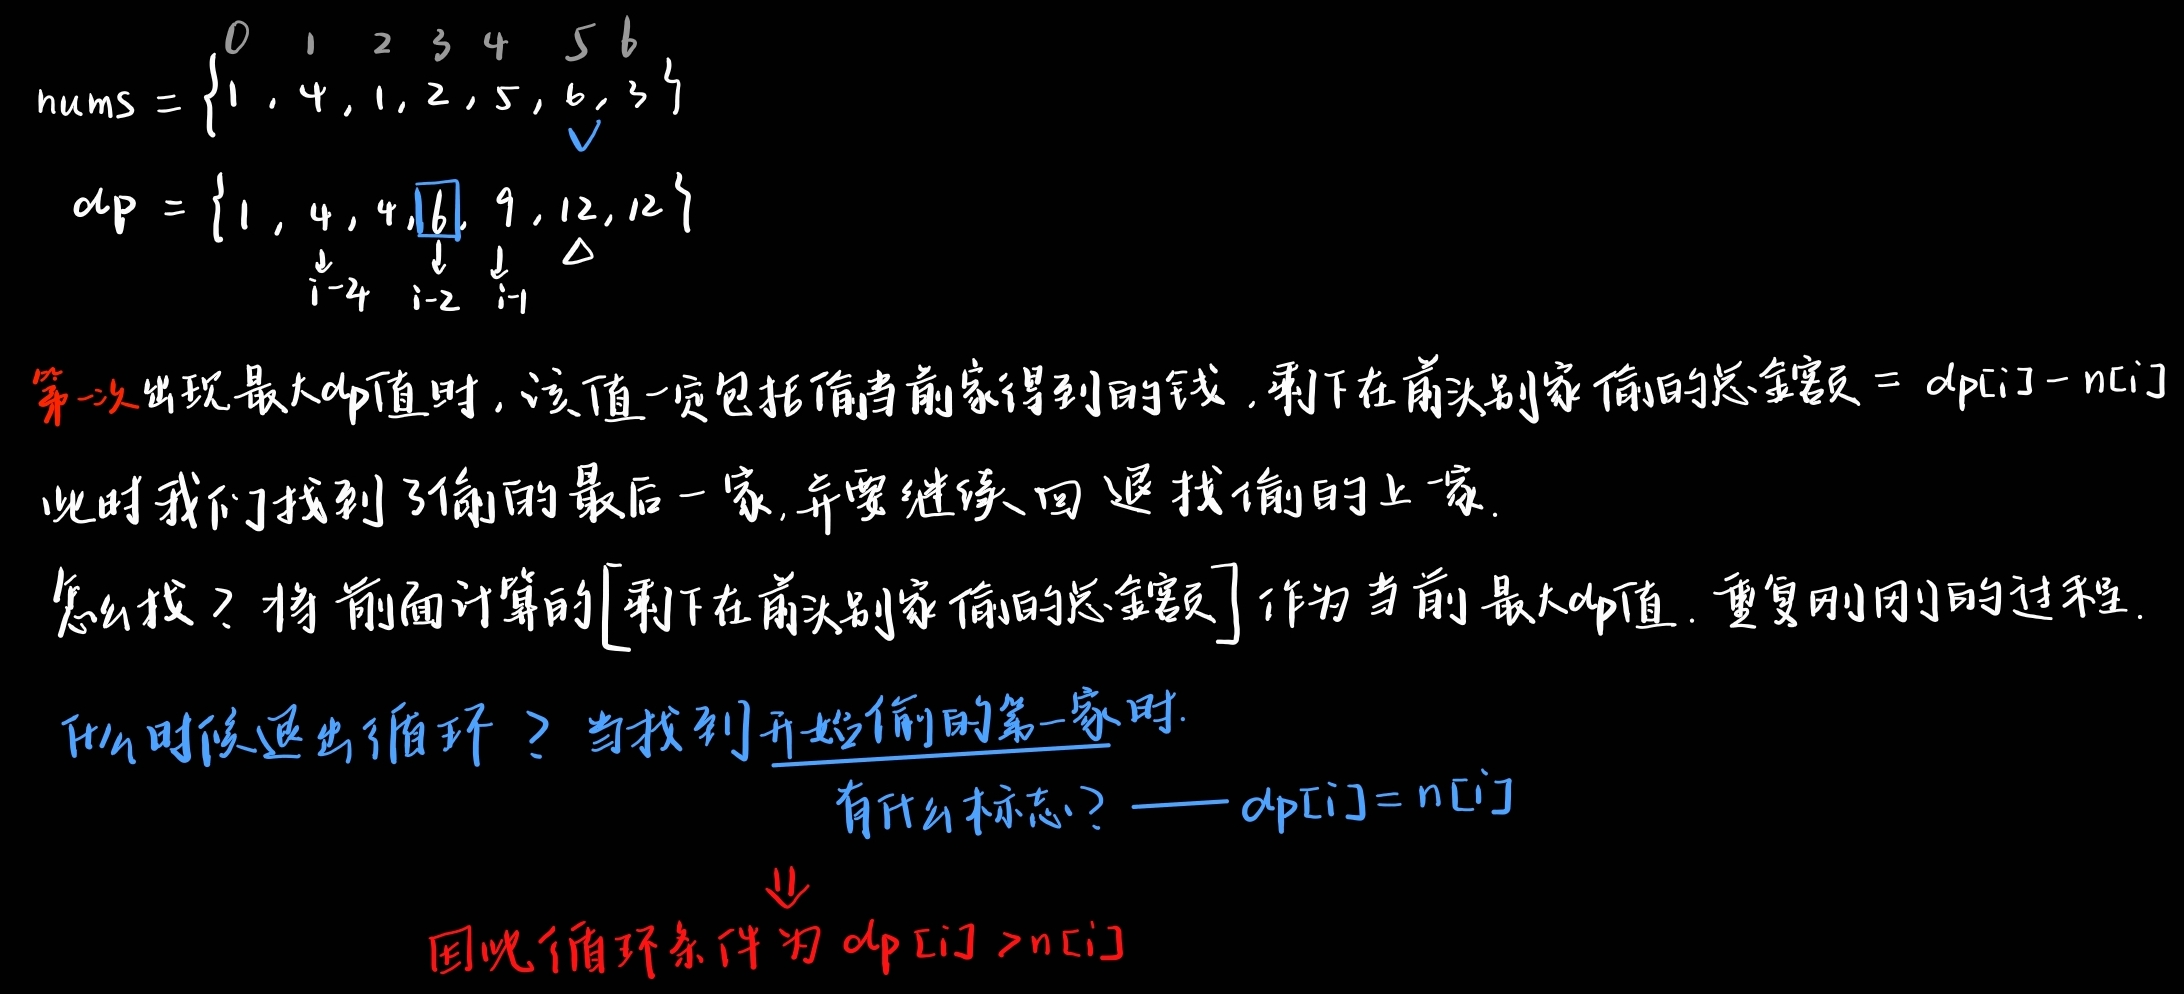 0 1 2 3 4 5 6
nums = {1, 4, 1, 2, 5, 6, 3}
dp = {1, 4, 4, 6, 9, 12, 12}
i-4 i-2 i-1
第一次出现最大dp值时,该值一定包括偷当前家得到的钱,剩下在前头别家偷的总金额 = dp[i] - n[i]
此时我们找到了偷的最后一家,并要继续回退找偷的上一家.
怎么找?将前面计算的[剩下在前头别家偷的总金额]作为当前最大dp值.重复刚刚的过程.
什么时候退出循环?当找到开始偷的第一家时.
有什么标志?——dp[i]=n[i]
因此循环条件为dp[i]>n[i]